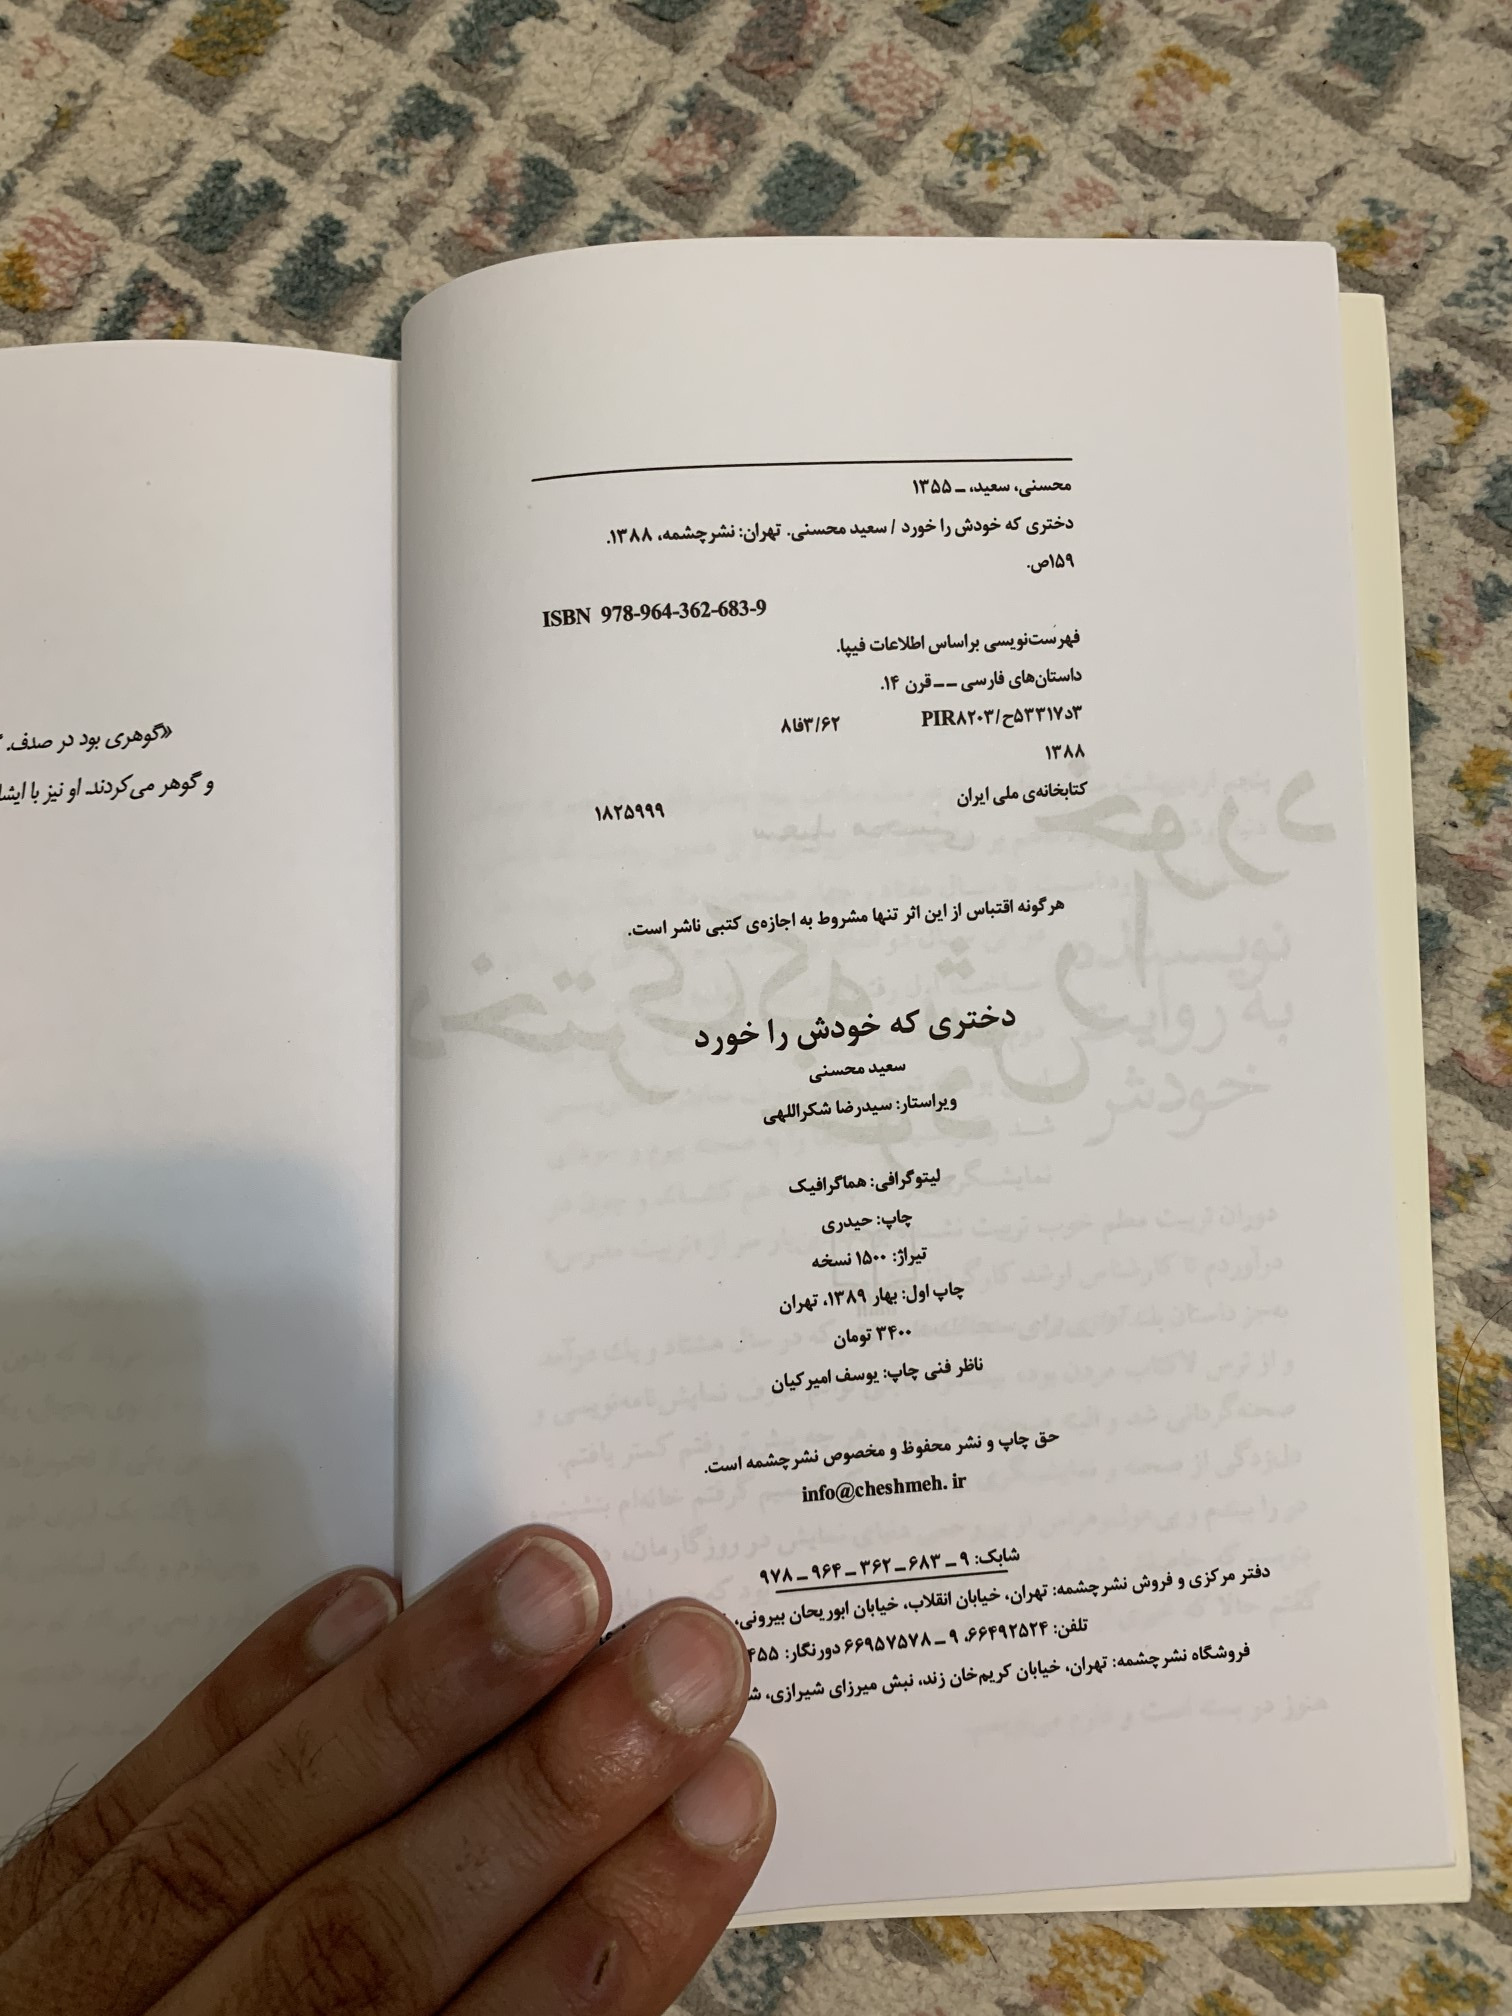 محسنی، سعید، ـ ۱۳۵۵
دختری که خودش را خورد / سعید محسنی. تهران: نشرچشمه، ۱۳۸۸.
۱۵۹ص.
ISBN 978-964-362-683-9
فهرست‌نویسی براساس اطلاعات فیپا.
داستان‌های فارسی ــ قرن ۱۴.
۳د۵۳۳۱۷ح/PIR۸۲۰۳ ۸فا۳/۶۲
۱۳۸۸
کتابخانه‌ی ملی ایران ۱۸۲۵۹۹۹
هرگونه اقتباس از این اثر تنها مشروط به اجازه‌ی کتبی ناشر است.
دختری که خودش را خورد
سعید محسنی
ویراستار: سیدرضا شکراللهی
لیتوگرافی: هماگرافیک
چاپ: حیدری
تیراژ: ۱۵۰۰ نسخه
چاپ اول: بهار ۱۳۸۹، تهران
۳۴۰۰ تومان
ناظر فنی چاپ: یوسف امیرکیان
حق چاپ و نشر محفوظ و مخصوص نشرچشمه است.
info@cheshmeh. ir
شابک: ۹ ـ ۶۸۳ ـ ۳۶۲ ـ ۹۶۴ ـ ۹۷۸
دفتر مرکزی و فروش نشرچشمه: تهران، خیابان انقلاب، خیابان ابوریحان بیرونی،
تلفن: ۶۶۴۹۲۵۲۴، ۹ ـ ۶۶۹۵۷۵۷۸ دورنگار:
فروشگاه نشرچشمه: تهران، خیابان کریم‌خان زند، نبش میرزای شیرازی،
«گوهری بود در صدف.
و گوهر می‌کردند. او نیز با